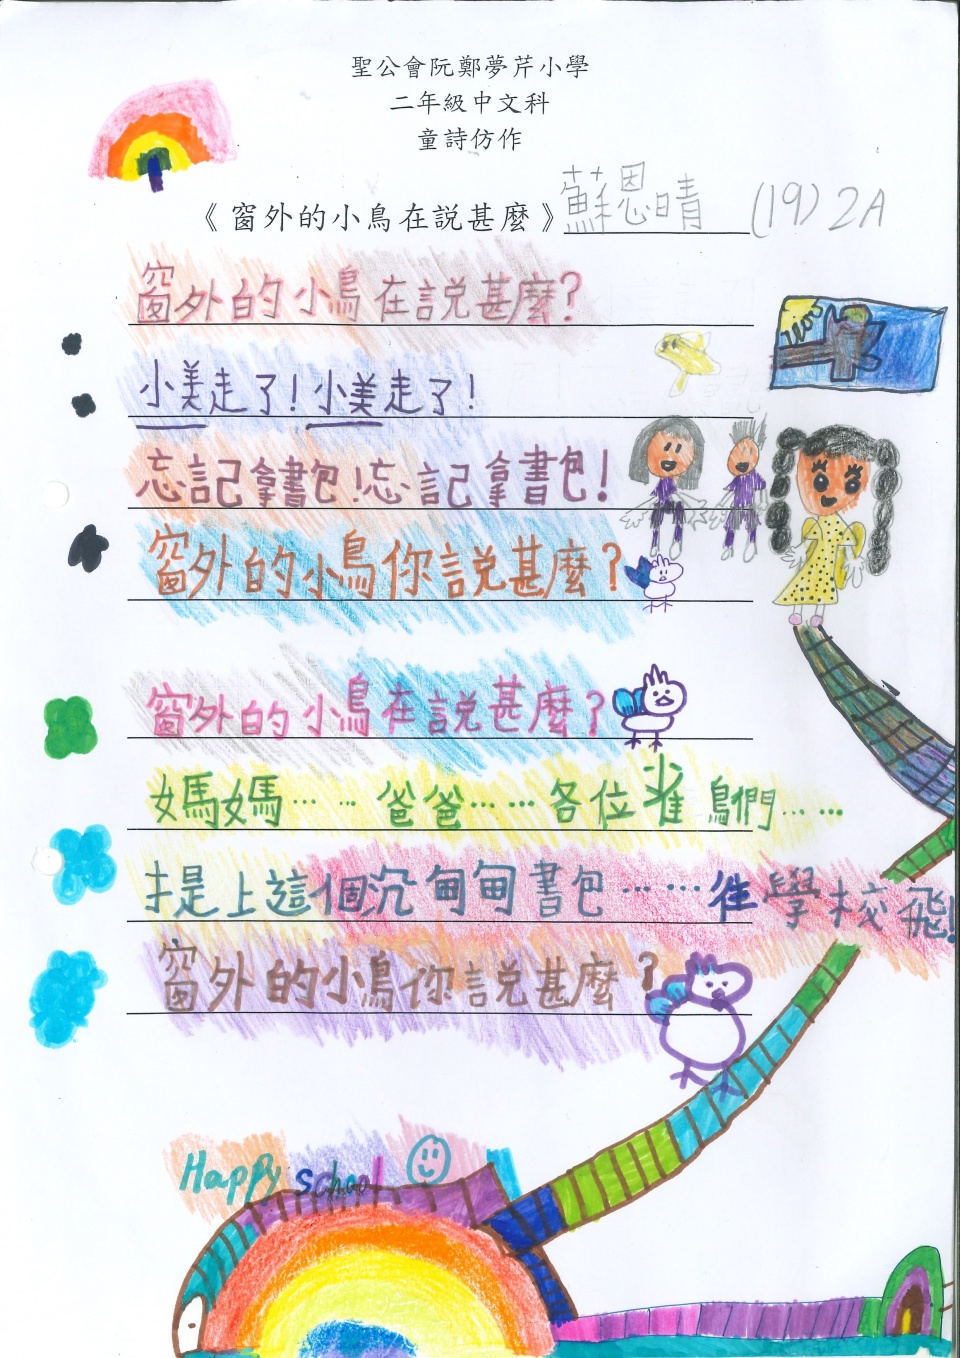 聖公會阮鄭夢芹小學
二年級中文科
童詩仿作
《窗外的小鳥在説甚麼》蘇恩晴 (19) 2A
窗外的小鳥在説甚麼?
小美走了!小美走了!
忘記拿書包!忘記拿書包!
窗外的小鳥你説甚麼?
窗外的小鳥在説甚麼?
媽媽……爸爸……各位雀鳥們……
提上這個沉甸甸書包……往學校飛!
窗外的小鳥你説甚麼?
Happy school